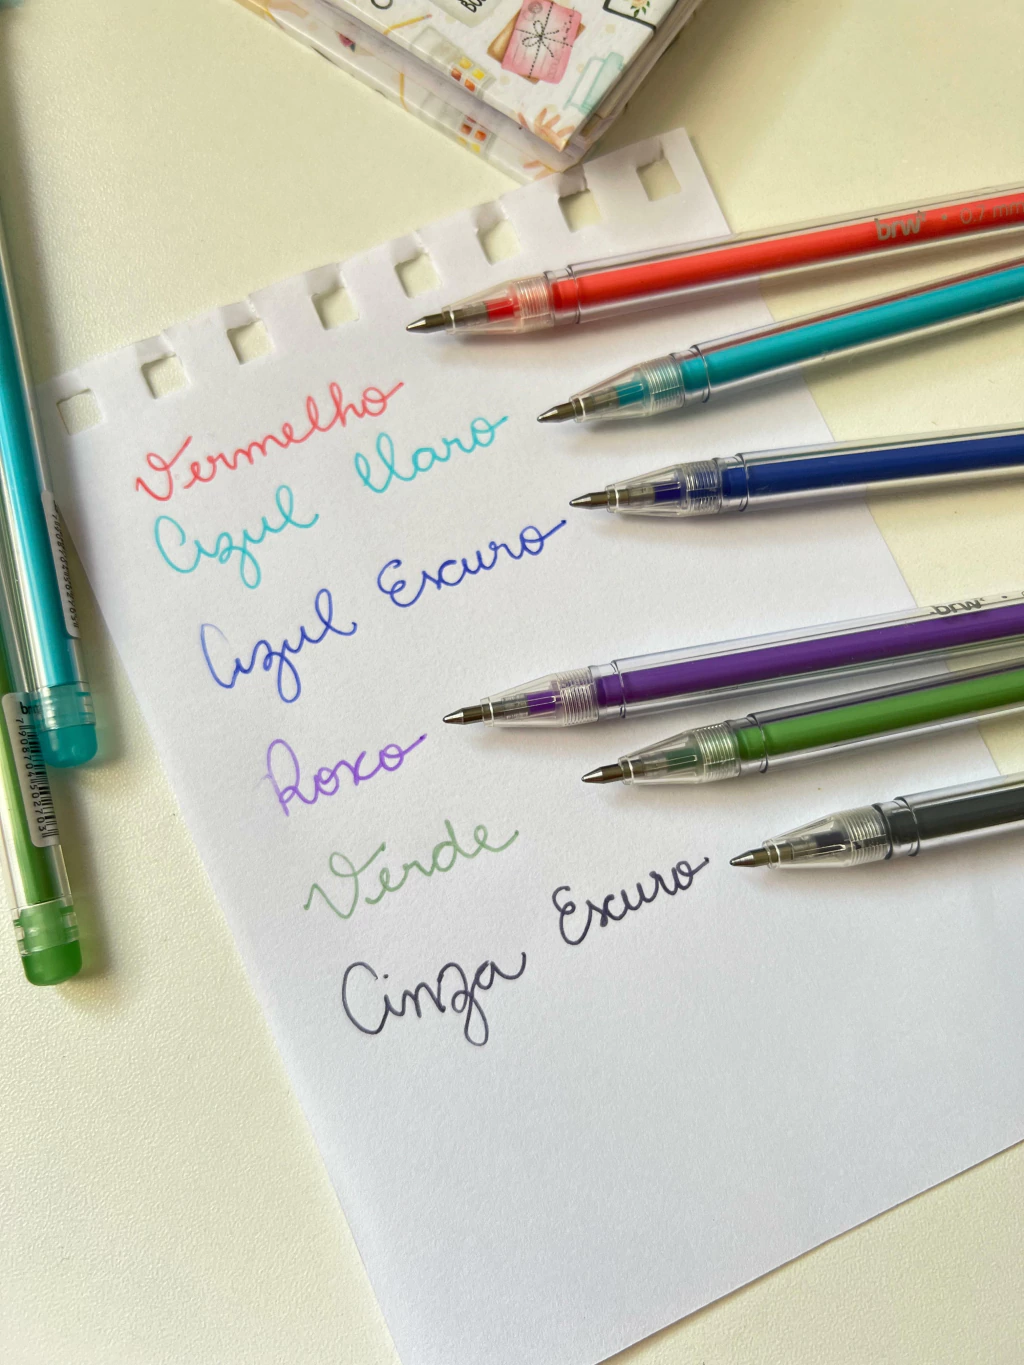 brw • 0.7 mm
Vermelho
Azul Claro
Azul Escuro
brw
Roxo
Verde
Cinza Escuro